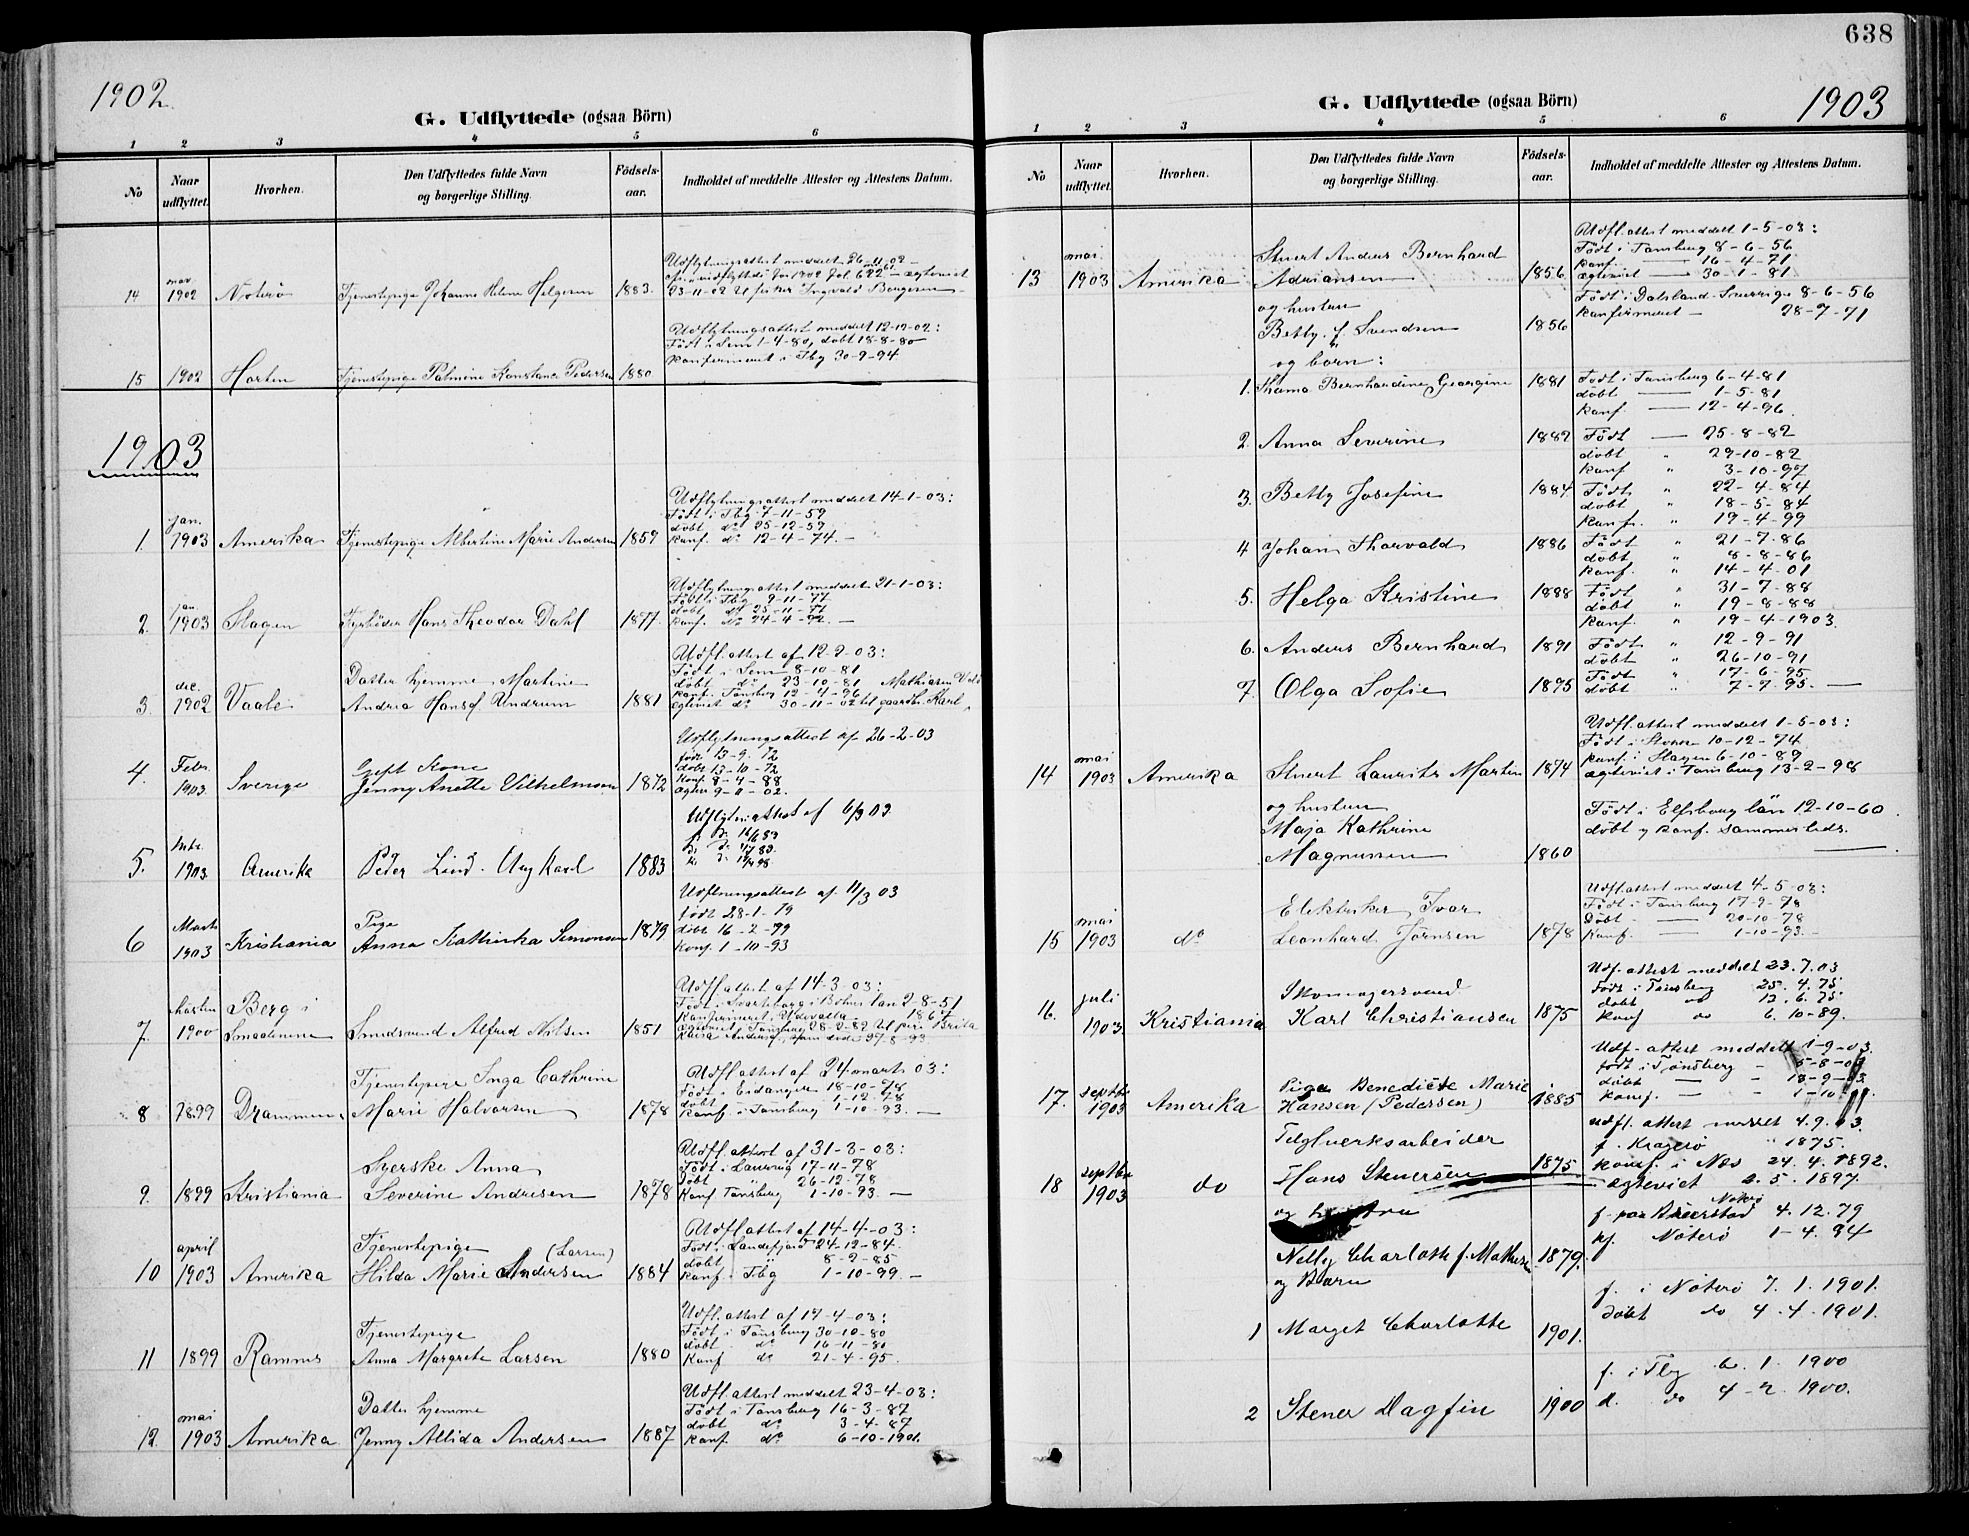 1902
G. Udflyttede (ogsaa Börn)
1 2 3 4 5 6
No
Naar udflyttet.
Hvorhen.
Den Udflyttedes fulde Navn og borgerlige Stilling.
Födsels-aar.
Indholdet af meddelte Attester og Attestens Datum.
Udflytningsattest meddelt 26-11-02 -
14 nov 1902 Nøterø Tjenestepige Johanne Helene Helgesen 1883. 23-11-02 til fisker Ingvald Borgersen
Udflytningsattest meddelt 12-12-02:
Født i Sem 1-4-80, døbt 18-8-80
konfirmeret i Tbg 30-9-94
15 1902 Horten Tjenestepige Palmine Konstance Pedersen 1880
1903
Udflytningsattest meddelt 14-1-03:
Født i Tbg 7-11-59
døbt do 25-12-59
1. Jan. 1903 Amerika Tjenestepige Albertine Marie Andersen 1859 konf. do 12-4-74. -
Udflytningsattest meddelt 21-1-03:
Født i Tbg 9-11-77
døbt do 25-11-77
2. Jan. 1903 Slagen Fyrbøder Hans Theodor Dahl 1877. konf. do 24-4-92. -
Udfl. attest af 12-2-03:
Født i Sem 8-10-81
Datter hjemme, Martine døbt do 23-10-81 Mathiasen
konf. Tønsberg 12-4-96
3. dec. 1902 Vaale Andrea Hansd. Undrum 1881 egteviet do 30-11-02 til gaardbr. Karl
Udflytningsattest af 26-2-03
født 13-9-72
døbt 13-10-72
Gift Kone konf. 8-4-88
4. Febr. 1903. Sverige Jenny Anette Vilhelmsen 1872
Udflytn. attest af 6/3 03
5. 1903. Amerika Peder Lind. Ung Karl 1883
Udfltningsattest af 11/3 03
født 28-1-79
Pige døbt 16-2-79
6 Marts 1903 Kristiania Anna Kathinka Simonsen 1879 konf. 1-10-93
Udfl. attest af 14-3-03:
Født i Svarteborg i Bohus län 2-8-51
Berg i konfirmeret i Udevalla 1867
7. høsten 1900 Smaalenene Smedsvend Alfred Nilsen 1851 egteviet i Tønsberg 28-2-82 til pige Brita
Kaisa Andersd., som døde 27-8-93
Udfl. attest af 24 marts 03:
Tjenestepige Inga Cathrine Født i Eidanger 18-10-78
døbt 1-12-78
8 1899 Drammen Marie Halvorsen 1878 konf. i Tønsberg 1-10-93. -
Udfl. attest af 31-3-03:
Født i Laurvig 17-11-78
Syerske Anna døbt 26-12-78
9. 1899 Kristiania Severine Andresen 1878 konf Tønsberg 1-10-93. -
Udfl attest af 14-4-03:
Født i Sandefjord 24-12-84.
Tjenestepige (Larsen) døbt 8-2-85
10 april 1903 Amerika Hilda Marie Andersen 1884 konf. i Tbg 1-10-99. -
Udfl. attest af 17-4-03:
Født i Tønsberg 30-10-80
Tjenestepige døbt do 16-11-80
11 1899 Ramnes Anna Margrete Larsen 1880 konf do 21-4-95.
Udfl. attest meddelt 23-4-03:
Født i Tønsberg 16-3-87
Datter hjemme døbt do 3-4-87
12. mai 1903 Amerika Jenny Allida Andersen 1887 konf. do 6-10-1901.
638
1903
G. Udflyttede (ogsaa Börn)
1 2 3 4 5 6
No
Naar udflyttet.
Hvorhen.
Den Udflyttedes fulde Navn og borgerlige Stilling.
Födsels-aar.
Indholdet af meddelte Attester og Attestens Datum.
Udfl. attest meddelt 1-5-03:
Stuert Anders Bernhard Født i Tønsberg 8-6-56
konf. 16-4-71
13 mai 1903 Amerika Adriansen 1856 egteviet 30-1-81
og hustru Født i Dalsland Sverrige 8-6-56
Betty f. Svendsen 1856 konfirmeret - 28-7-71
og børn:
1. Thoma Bernhardine Georgine 1881 Født i Tønsberg 6-4-81
døbt 1-5-81
konf. 12-4-96.
2. Anna Severine 1882 Født 25-8-82
døbt " 29-10-82
konf " 3-10-97
3. Betty Josefine 1884 Født " 22-4-84
døbt " 18-5-84
konf. " 19-4-99
4 Johan Thorvald 1886 Født " 21-7-86
døbt " 8-8-86
konf. " 14-4-01
5. Helga Kristine 1888 Født " 31-7-88
døbt " 19-8-88
konf. " 19-4-1903.
6. Anders Bernhard 1891 Født " 12-9-91
døbt " 26-10-91
7. Olga Sofie 1895 Født " 17-6-95
døbt " 7-7-95. -
Udfl. attest meddelt 1-5-03:
Født i Stokke 10-12-74
konf. i Slagen 6-10-89
14 mai 1903 Amerika Stuert Laurits Martin 1874 egteviet i Tønsberg 13-2-98
og hustru Født i Elfsborg län 12-10-60.
Maja Kathrine døbt og konf. sammesteds.
Magnussen 1860
Udfl. attest meddelt 4-5-03:
Elektriker Ivar Født i Tønsberg 17-9-78
Døbt 20-10-78
15 mai 1903 do Leonhard Jørnsen 1878 konf. 1-10-93. -
Udf. attest meddelt 23.7.03
Skomagersvend født i Tønsberg 25.4.75
døbt do 13.6.75
16. juli 1903. Kristiania Karl Christiansen 1875 konf do 6.10-89.
Udf. attest meddelt 1-9-03.
født i Tønsberg
Pige Benedicte Marie døbt
17. septbr 1903 Amerika Hansen (Pedersen) 1885 konf.
Teglverksarbeider f. Kragerø 1875.
konf. i Nes 24.4.1892.
18 septbr 1903 do Hans Stenersen 1875 egteviet 2.5.1897.
og hustru Nøterø 4.12.79
kf. Nøterø 1-4.94
Nelly Charlotte f. Mathisen 1879.
og Børn
1 Marget Charlotte 1901. f. i Nøterø 7.1.1901.
døbt do 4.4.1901.
2 Stener Dagfin 1900 f. i Tbg 6.1.1900
d. do 4-2.1900.